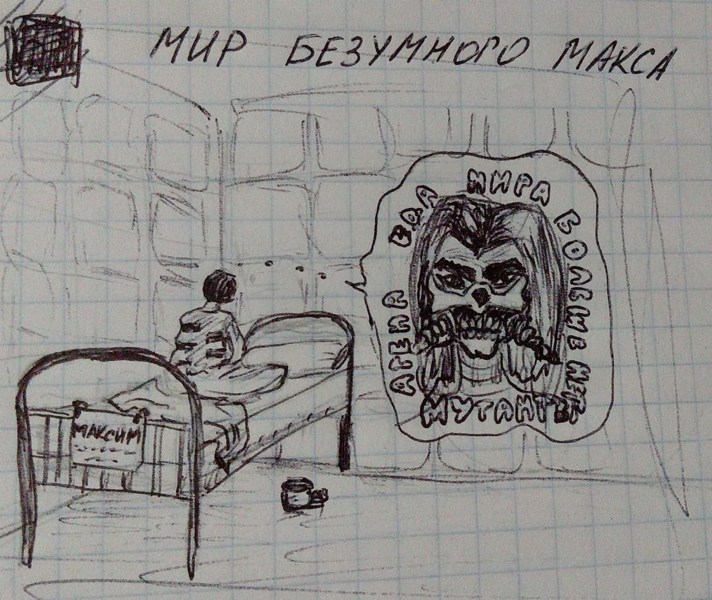 МИР БЕЗУМНОГО МАКСА
АРЕНА
МИРА БОЛЬШЕ НЕТ
МУТАНТЫ
МАКСИМ